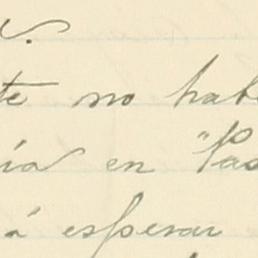 te no hab
ía en "Pas
á esperar